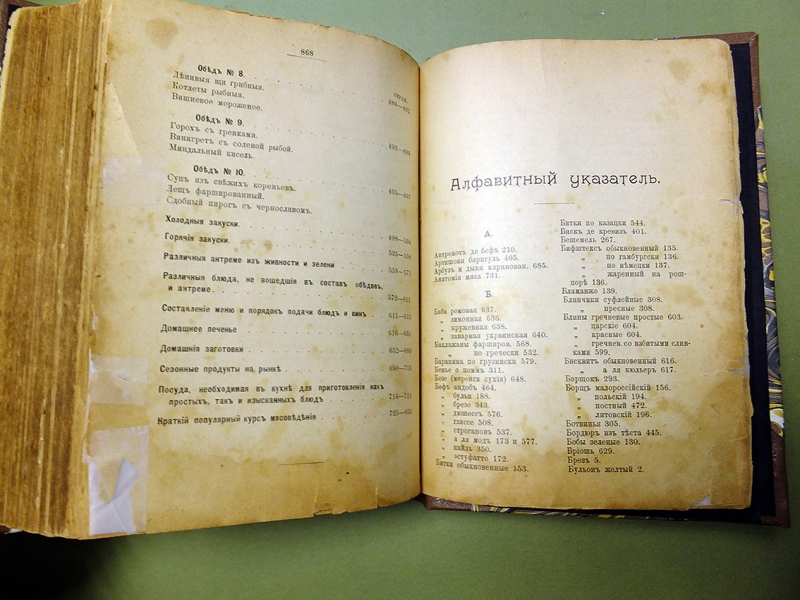 868
СТРАН.
Обѣдъ № 8.
Лѣнивыя щи грибныя.
Котлеты рыбныя.
Вишневое мороженое.
Обѣдъ № 9.
Горохъ съ гренками.
Винигретъ съ соленой рыбой.
Миндальный кисель.
Обѣдъ № 10.
Супъ изъ свѣжихъ кореньевъ.
Лещъ фаршированный.
Сдобный пирогъ съ черносливомъ.
Холодныя закуски
Горячія закуски
Различныя антреме изъ живности и зелени
Различныя блюда, не вошедшія въ составъ обѣдовъ,
и антреме
Составленіе меню и порядокъ подачи блюдъ и винъ
Домашнее печенье
Домашнія заготовки
Сезонные продукты на рынкѣ
Посуда, необходимая въ кухнѣ для приготовленія какъ
простыхъ, такъ и изысканныхъ блюдъ
Краткій популярный курсъ мясовѣдѣнія
Алфавитный указатель.
А.
Антрекотъ де бефъ 210.
Артишоки баригуль 405.
Арбузъ и дыня марипован. 685.
Анатомія мяса 731.
Б.
Баба ромовая 637.
„ лимонная 636.
„ кружевная 638.
„ заварная украинская 640.
Баклажаны фаширов. 568.
„ по гречески 532.
Баранина по грузински 579.
Бенье о поммъ 311.
Безе (меренги сухія) 648.
Бефъ андобъ 464.
„ бульи 188.
„ брезе 343.
„ дюшессъ 576.
„ глиссе 508.
„ строгановъ 537.
„ а ля модъ 173 и 577.
„ пайль 350.
„ эстуфатто 172.
Битки обыкновенные 153.
Битки по казацки 544.
Бискъ де кревизъ 401.
Бешемель 267.
Бифштексъ обыкновенный 135.
„ по гамбургски 136.
„ по нѣмецки 137.
„ жаренный на рош-
порѣ 136.
Бламанже 139.
Блинчики суфлейные 308.
„ пресные 308.
Блины гречневые простые 603.
„ царскіе 604.
„ красные 604.
„ гречнев. со взбитыми слив-
ками 599.
Бисквитъ обыкновенный 616.
„ а ля кюльеръ 617.
Борщокъ 293.
Борщъ малороссійскій 156.
„ польскій 194.
„ постный 472.
„ литовскій 196.
Ботвинья 305.
Бордюръ изъ тѣста 445.
Бобы зеленые 130.
Бріошь 629.
Брезъ 5.
Бульонъ желтый 2.